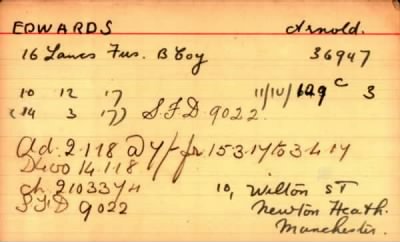 EDWARDS Arnold.
16 Lancs Fus. B Coy 36947
10 12 17 11/10/149 C 3
(14 3 17) S.F.D 9022.
Ad. 2.1.18 @ 7/- fr 15.3.17 to 3.4.17
D400 14.1.18
ch 2103374
SFD 9022
10, Wilton ST
Newton Heath.
Manchester.